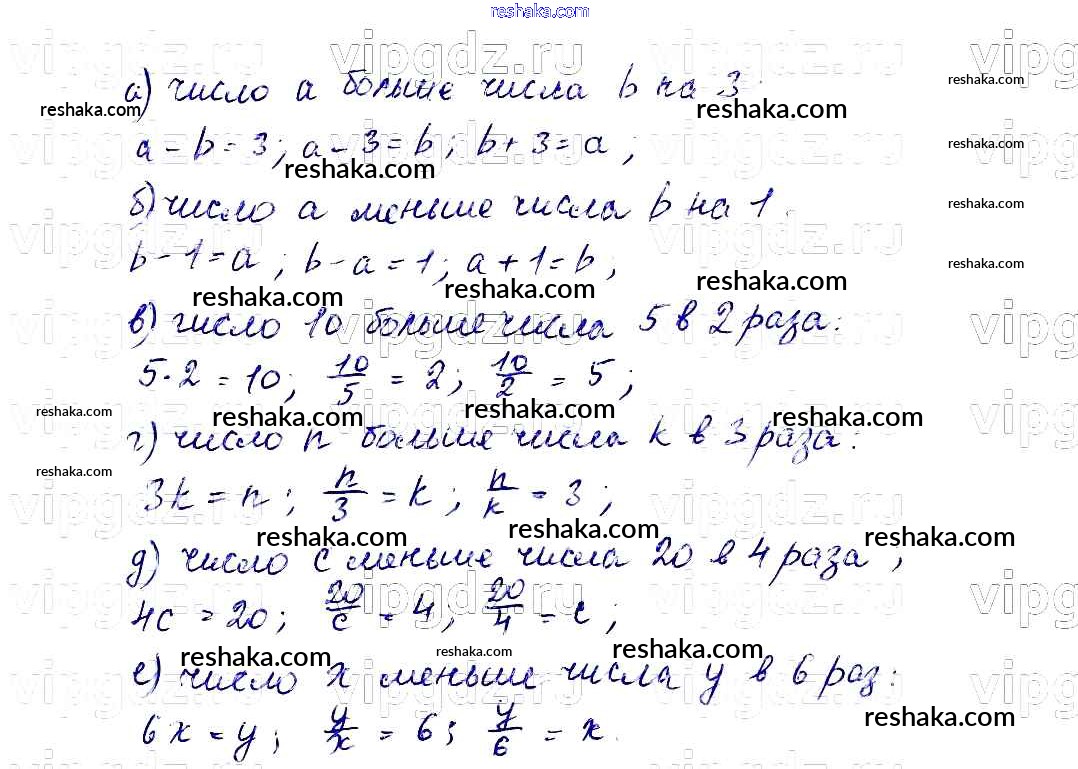 reshaka.com
vipgdz.ru vipgdz.ru vipgdz
а) число a больше числа b на 3:
reshaka.com reshaka.com reshaka.com
a - b = 3; a - 3 = b; b + 3 = a;
reshaka.com reshaka.com
б) число a меньше числа b на 1.
reshaka.com
vipgdz.ru vipgdz.ru vipgdz
b - 1 = a; b - a = 1; a + 1 = b;
reshaka.com reshaka.com reshaka.com reshaka.com
в) число 10 больше числа 5 в 2 раза:
vipgdz.ru vipgdz.ru vipgdz
5 · 2 = 10; 10/5 = 2; 10/2 = 5;
reshaka.com reshaka.com reshaka.com reshaka.com
г) число n больше числа k в 3 раза:
reshaka.com
vipgdz.ru vipgdz.ru vipgdz
3k = n; n/3 = k; n/k = 3;
reshaka.com reshaka.com reshaka.com
д) число c меньше числа 20 в 4 раза;
vipgdz.ru vipgdz.ru vipgdz
4c = 20; 20/c = 4; 20/4 = c;
reshaka.com reshaka.com reshaka.com
е) число x меньше числа y в 6 раз:
vipgdz.ru vipgdz.ru vipgdz
reshaka.com
6x = y; y/x = 6; y/6 = x.